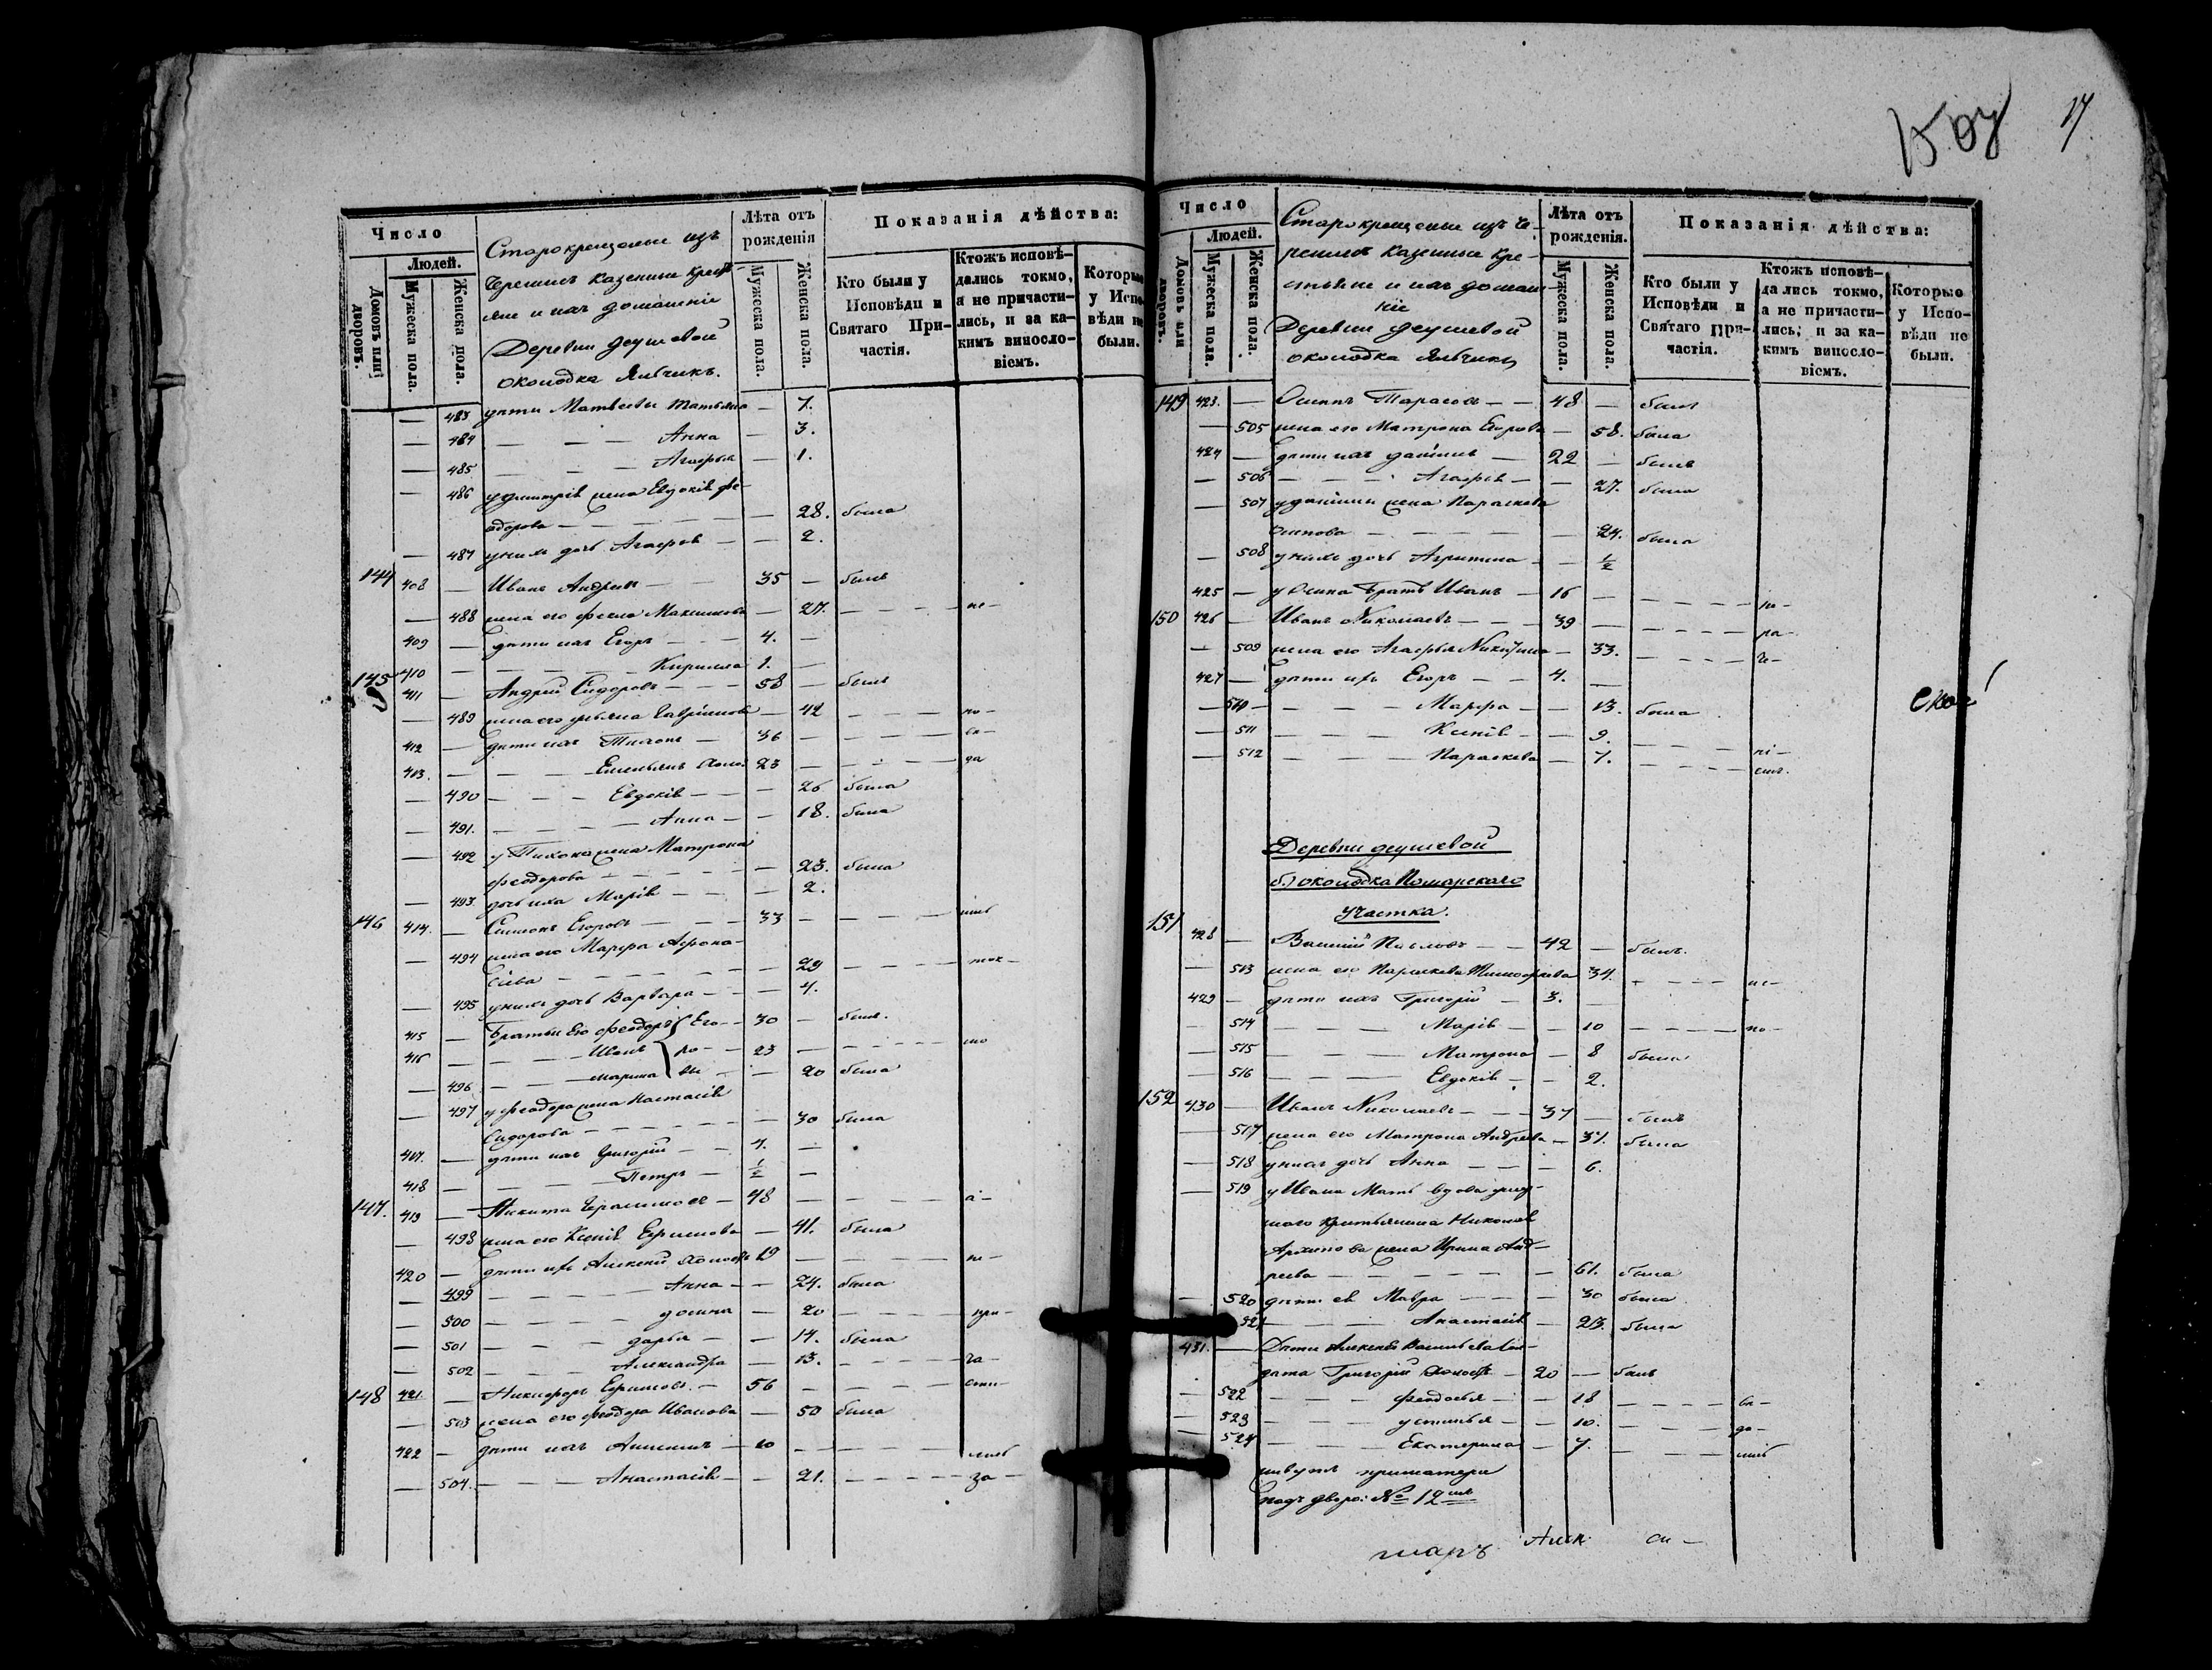 Число
Людей.
Домовъ или дворовъ.
Мужеска пола.
Женска пола.
Старокрещеные изъ
Черемисъ казенные кресть-
яне и ихъ домашніе
Деревни Деушевой
околодка Яльчикъ.
Лѣта отъ рожденія
Мужеска пола.
Женска пола.
Показанія дѣйства:
Кто были у Исповѣди и Святаго Причастія.
Ктожъ исповѣ-дались токмо, а не причасти-лись, и за ка-кимъ винослo-віемъ.
Которые у Испо-вѣди не были.
— 483 дѣти Матвеевы Татьяна — 7.
— 484 — — — Анна — 3.
— 485 — — — Агафья — 1.
— 486 у Димитрія жена Евдокія Фе-
одорова — — — — 28. была
— 487 у нихъ дочь Агафія — — 2.
144 408 — Иванъ Андреевъ — 35 — былъ
— 488 жена его Фекла Максимова — 27. — — — не-
409 — дѣти ихъ Егоръ — — 4. —
410 — — — — Кирилла 1. —
145 411 — Андрей Сидоровъ — — 58 — былъ
— 489 жена его Ульяна Гаврилова — 42 — — — по-
412 — дѣти ихъ Тихонъ — 36 — — — —
413. — — — Емельянъ холос. 23 — — — да
— 490 — — — Евдокія — — 26 была
— 491. — — — — Анна — — 18. была
— 492 у Тихона жена Матрона
Феодорова — — — — 23. была
— 493. дочь ихъ Марія — — 2.
146 414. — Симеонъ Егоровъ — — 33 — — —
— 494 жена его Марфа Афона-
сіева — — — — 29 — — —
— 495 у нихъ дочь Варвара — — 4.
415 — Братья его Феодоръ Его- — 30 — былъ.
416 — — — Иванъ ро- — 23 — — —
— 496 — — — Марина вы — — 20 была
— 497 у Феодора жена Настасія
Сидорова — — — — 30 была
417. — дѣти ихъ Григорій — 4. —
418 — — — — Петръ — ½ —
147. 419 — Никита Герасимовъ — 48 — — — а-
— 498 жена его Ксенія Ефимова — 41. была
420 — дѣти ихъ Алексей холостъ 19 — — — не-
— 499 — — — — Анна — — 24. была
— 500 — — — — Домна — 20 — — — при-
— 501 — — — Дарья — — 14. была
— 502 — — — Александра — 13. — — — ча-
148 421. — Никифоръ Ефимовъ. — 56 — — — сти-
— 503 жена его Феодора Иванова — 50 была
422 — дѣти ихъ — 10 — — —
— 504. — — — Анастасія — — 21. — — — за-
1507
17
Число
Людей.
Домовъ или дворовъ.
Мужеска пола.
Женска пола.
Старокрещеные изъ Че-
ремисъ казенные кре-
стьяне и ихъ домаш-
ніе
Деревни Деушевой
околодка Яльчикъ
Лѣта отъ рожденія.
Мужеска пола.
Женска пола.
Показанія дѣйства:
Кто были у Исповѣди и Святаго Причастія.
Ктожъ исповѣ-дались токмо, а не причасти-лись, и за ка-кимъ винослo-віемъ.
Которые у Испо-вѣди не были.
149 423. — Осипъ Тарасовъ — — 48 — былъ
— 505 жена его Матрона Егорова — 58. была
424 — дѣти ихъ Даніилъ — 22 — былъ
— 506 — — — Агафія — — 27. была
— 507 у Даніила жена Параскева
Осипова — — — — 24. была
— 508 у нихъ дочь Агрипина — — ½
425 — у Осипа Братъ Иванъ — 16 — — — —
150 426 — Иванъ Николаевъ — — 39 — — — ра-
— 509 жена его Агафья Никитина — 33. — — —
427 — дѣти ихъ Егоръ — — 4. —
— 510 — — — Марфа — — 13. была
— 511 — — — Ксенія — — 9. — — —
— 512 — — — Параскева — 7. — — —
Деревни Деушевой
б.) околодка Помарскаго
участка.
151 428 — Василій Павловъ — — 42 — былъ.
— 513 жена его Параскева Тимофеева 34. — — — не-
429 — дѣти ихъ Григорій — 3. —
— 514 — — — Марія — — 10 — — — по-
— 515 — — — Матрона — 8 была
— 516 — — — Евдокія — — 2.
152 430 — Иванъ Николаевъ — — 37 — былъ
— 517 жена его Матрона Андреева — 37. была
— 518 у нихъ дочь Анна — — — 6.
— 519 у Ивана Мать вдова умер-
шаго крестьянина Николая
Архипова жена Ирина Анд-
реева — — — — 61. была
— 520 дѣти ея Мавра — — — 30 была
— 521 — — — Анастасія — 23. была
431. — Дѣти Алексея Васильева Сол-
дата Григорій холостъ — 20 — былъ
— 522 — — — Феодосья — — 18 — — —
— 523 — — — Устинья — — 10. — — —
— 524 — — — Екатерина — 7. — — —
живутъ при матери
подъ дворо: № 12мъ